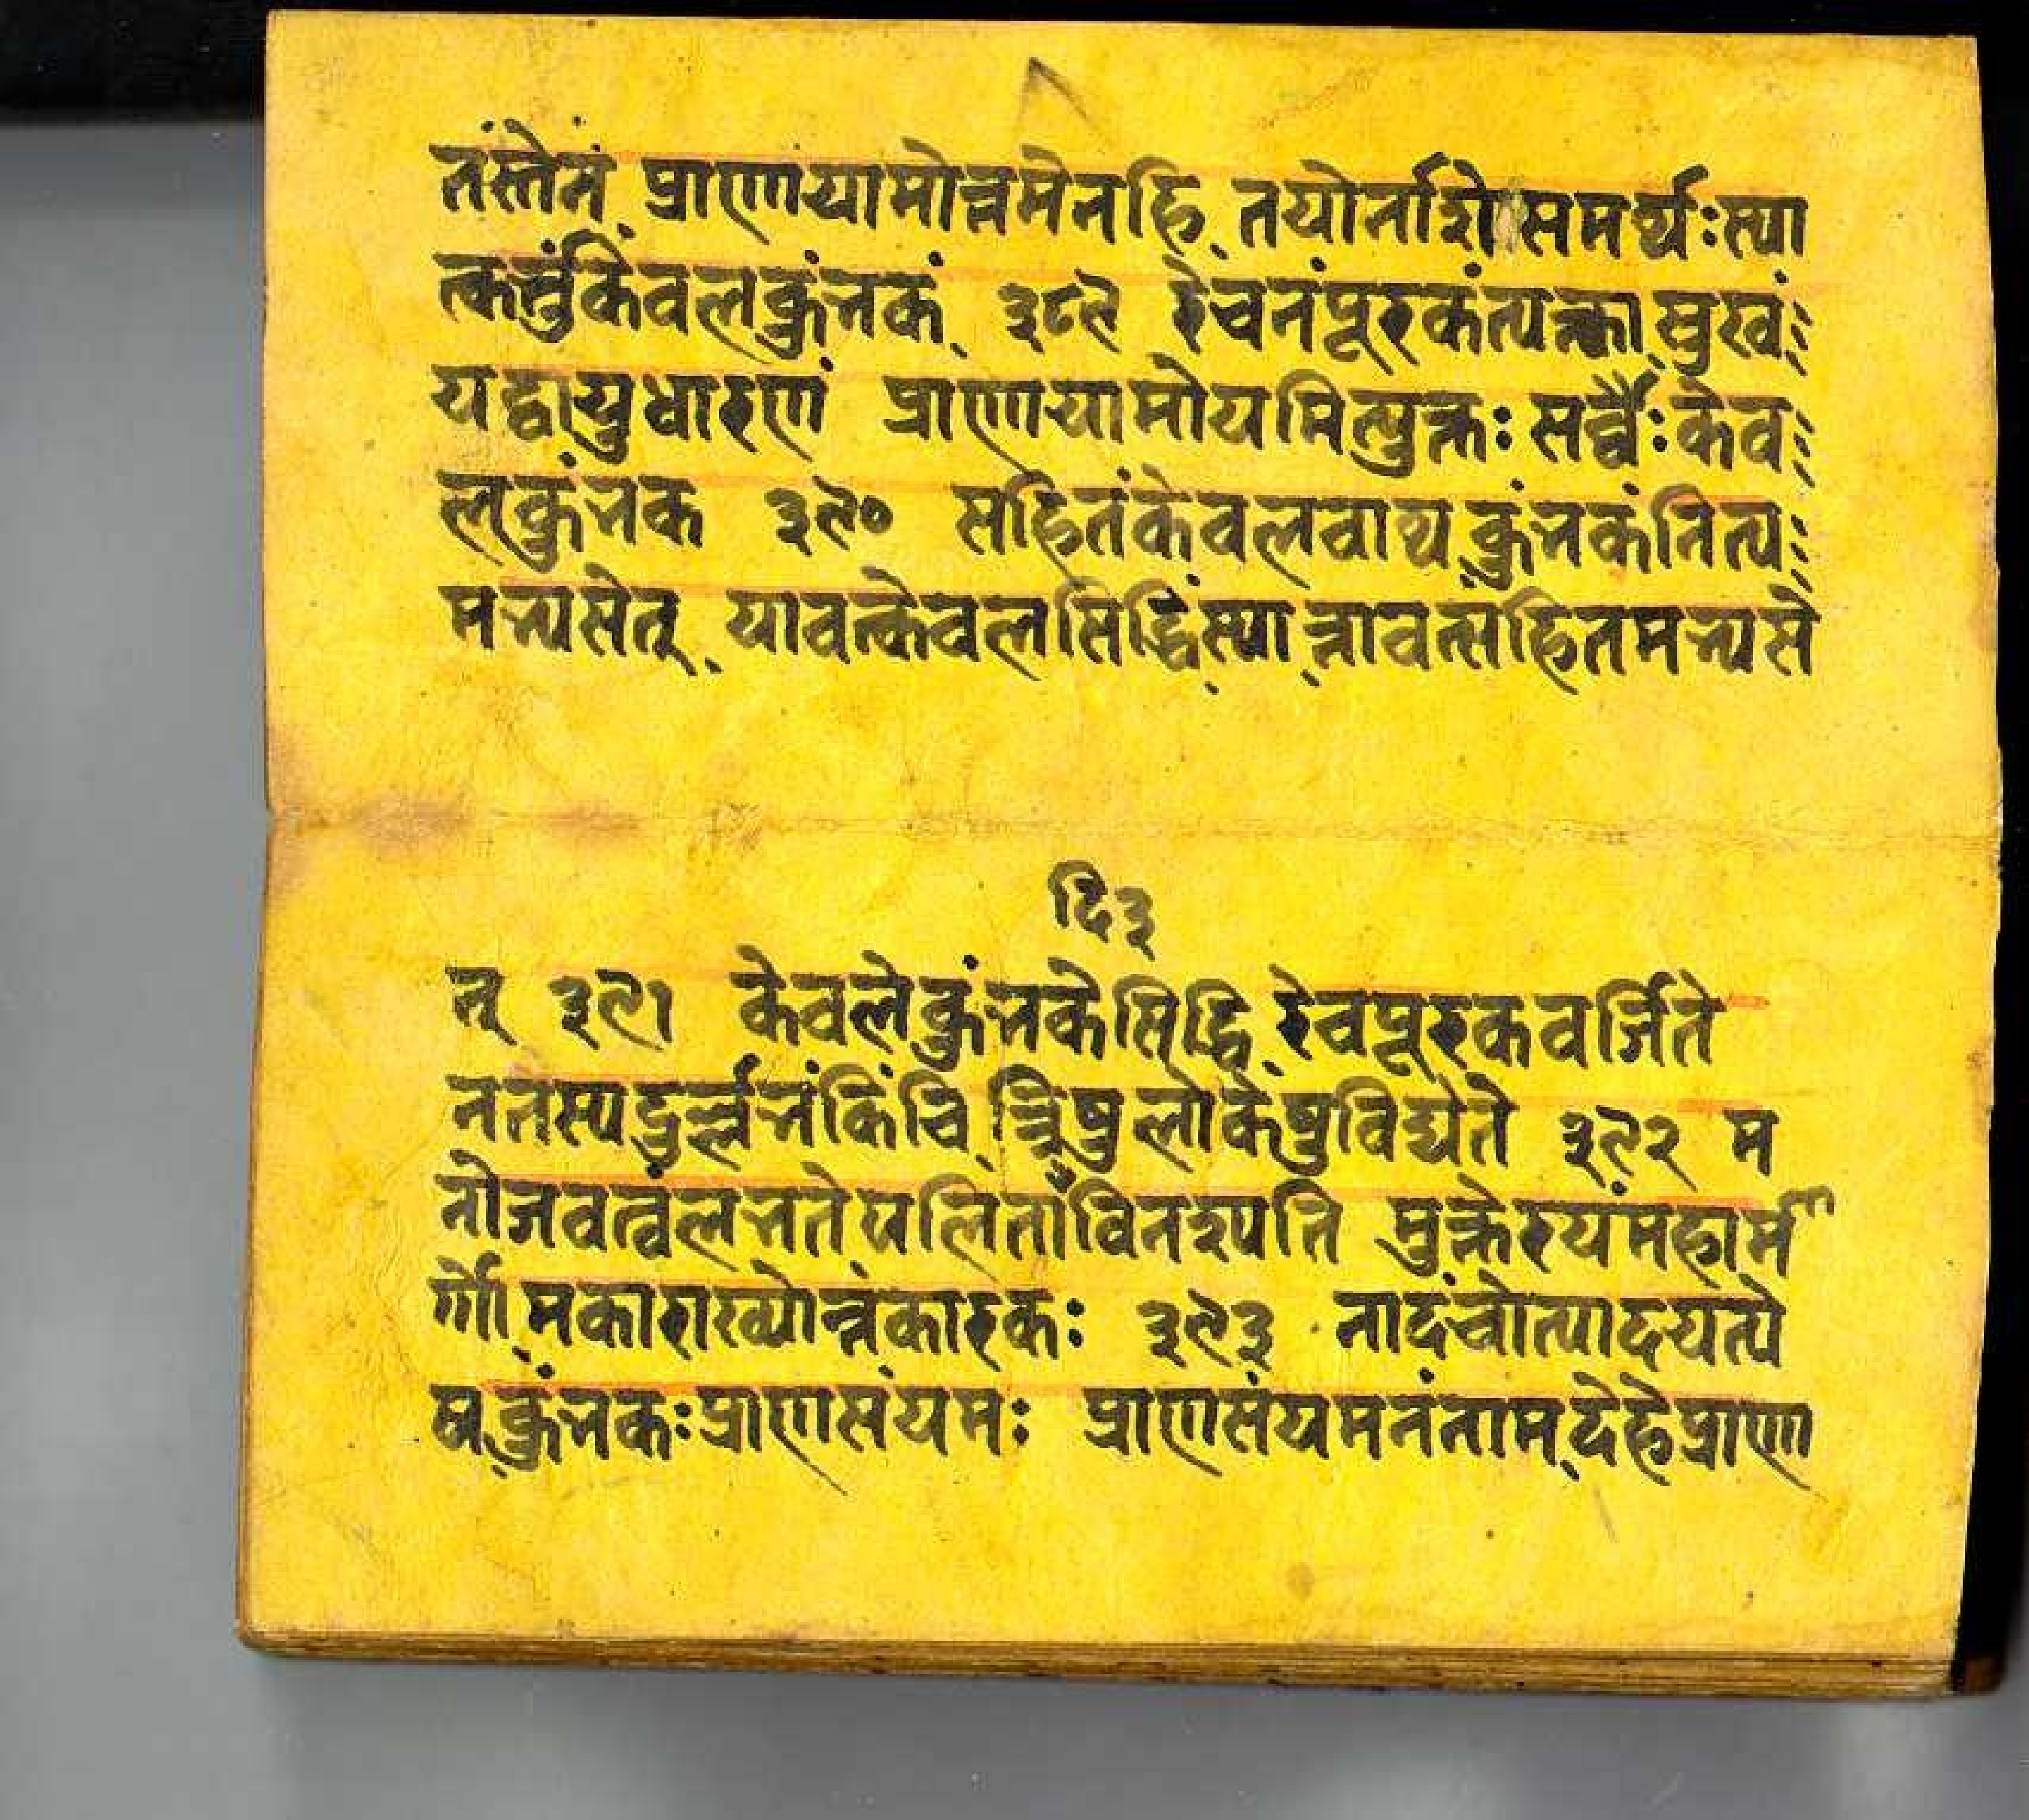 तंस्तेनं प्राणायामोत्तमेनहि तयोर्नाशे समर्थः स्या
त्कर्त्तुंकेवलकुंभकं ३८९ रेचनंपूरकंत्यक्त्वा सुखं
यद्वायुधारणं प्राणायामोयमित्युक्तः सर्व्वैः केव
लकुंभक ३९० सहितंकेवलवाथ कुंभकंनित्य
मभ्यसेत् यावत्केवलसिद्धिंस्या त्तावत्सहितमभ्यसे
दि३
त् ३९१ केवलेकुंभकेसिद्धि रेचपूरकवर्जिते
नतस्यदुर्ल्लभंकिंचि त्त्रिषुलोकेषुविद्यते ३९२ म
नोजवत्वंलभते पलितांविनश्यति मुक्तेरयंमहामा
र्गो मकाराख्योन्नंकारकः ३९३ नादंचोत्पादयत्ये
ष कुंभकः प्राणसंयमः प्राणसंयमनंनाम देहेप्राण